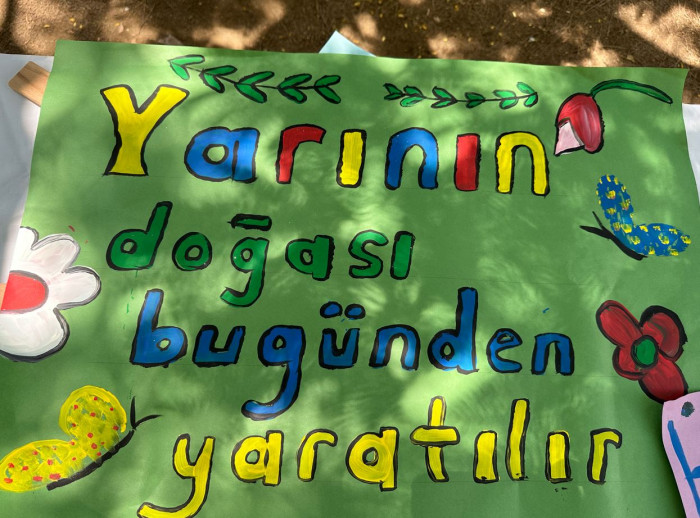 Yarının
doğası
bugünden
yaratılır